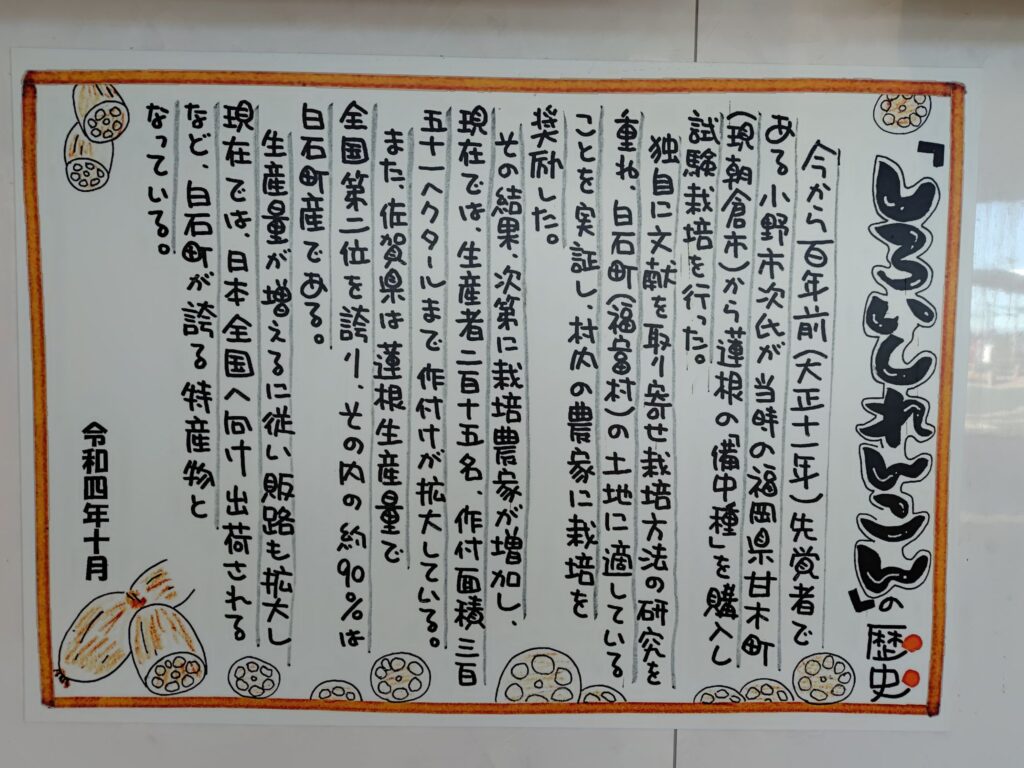 「しろいしれんこん」の歴史
今から百年前(大正十一年)先覚者で
ある小野市次氏が当時の福岡県甘木町
(現朝倉市)から蓮根の「備中種」を購入し
試験栽培を行った。
独自に文献を取り寄せ栽培方法の研究を
重ね、白石町(福富村)の土地に適している
ことを実証し、村内の農家に栽培を
奨励した。
その結果、次第に栽培農家が増加し、
現在では、生産者二百十五名、作付面積三百
五十一ヘクタールまで作付けが拡大している。
また、佐賀県は蓮根生産量で
全国第二位を誇り、その内の約90%は
白石町産である。
生産量が増えるに従い販路も拡大し
現在では、日本全国へ向け出荷される
など、白石町が誇る特産物と
なっている。
令和四年十月